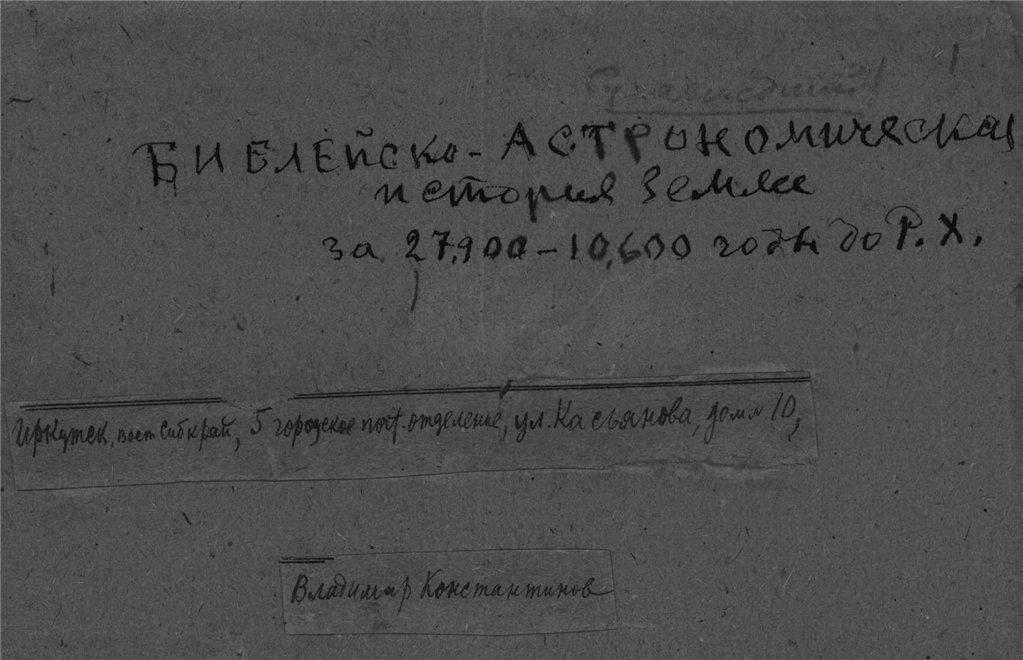 БИБЛЕЙСКО-АСТРОНОМИЧЕСКАЯ
история Земли
за 27,900-10,600 годы до Р. Х.
Иркутск, вост Сибкрай, 5 городское почт. отделение, ул. Касьянова, дом № 10,
Владимир Константинов